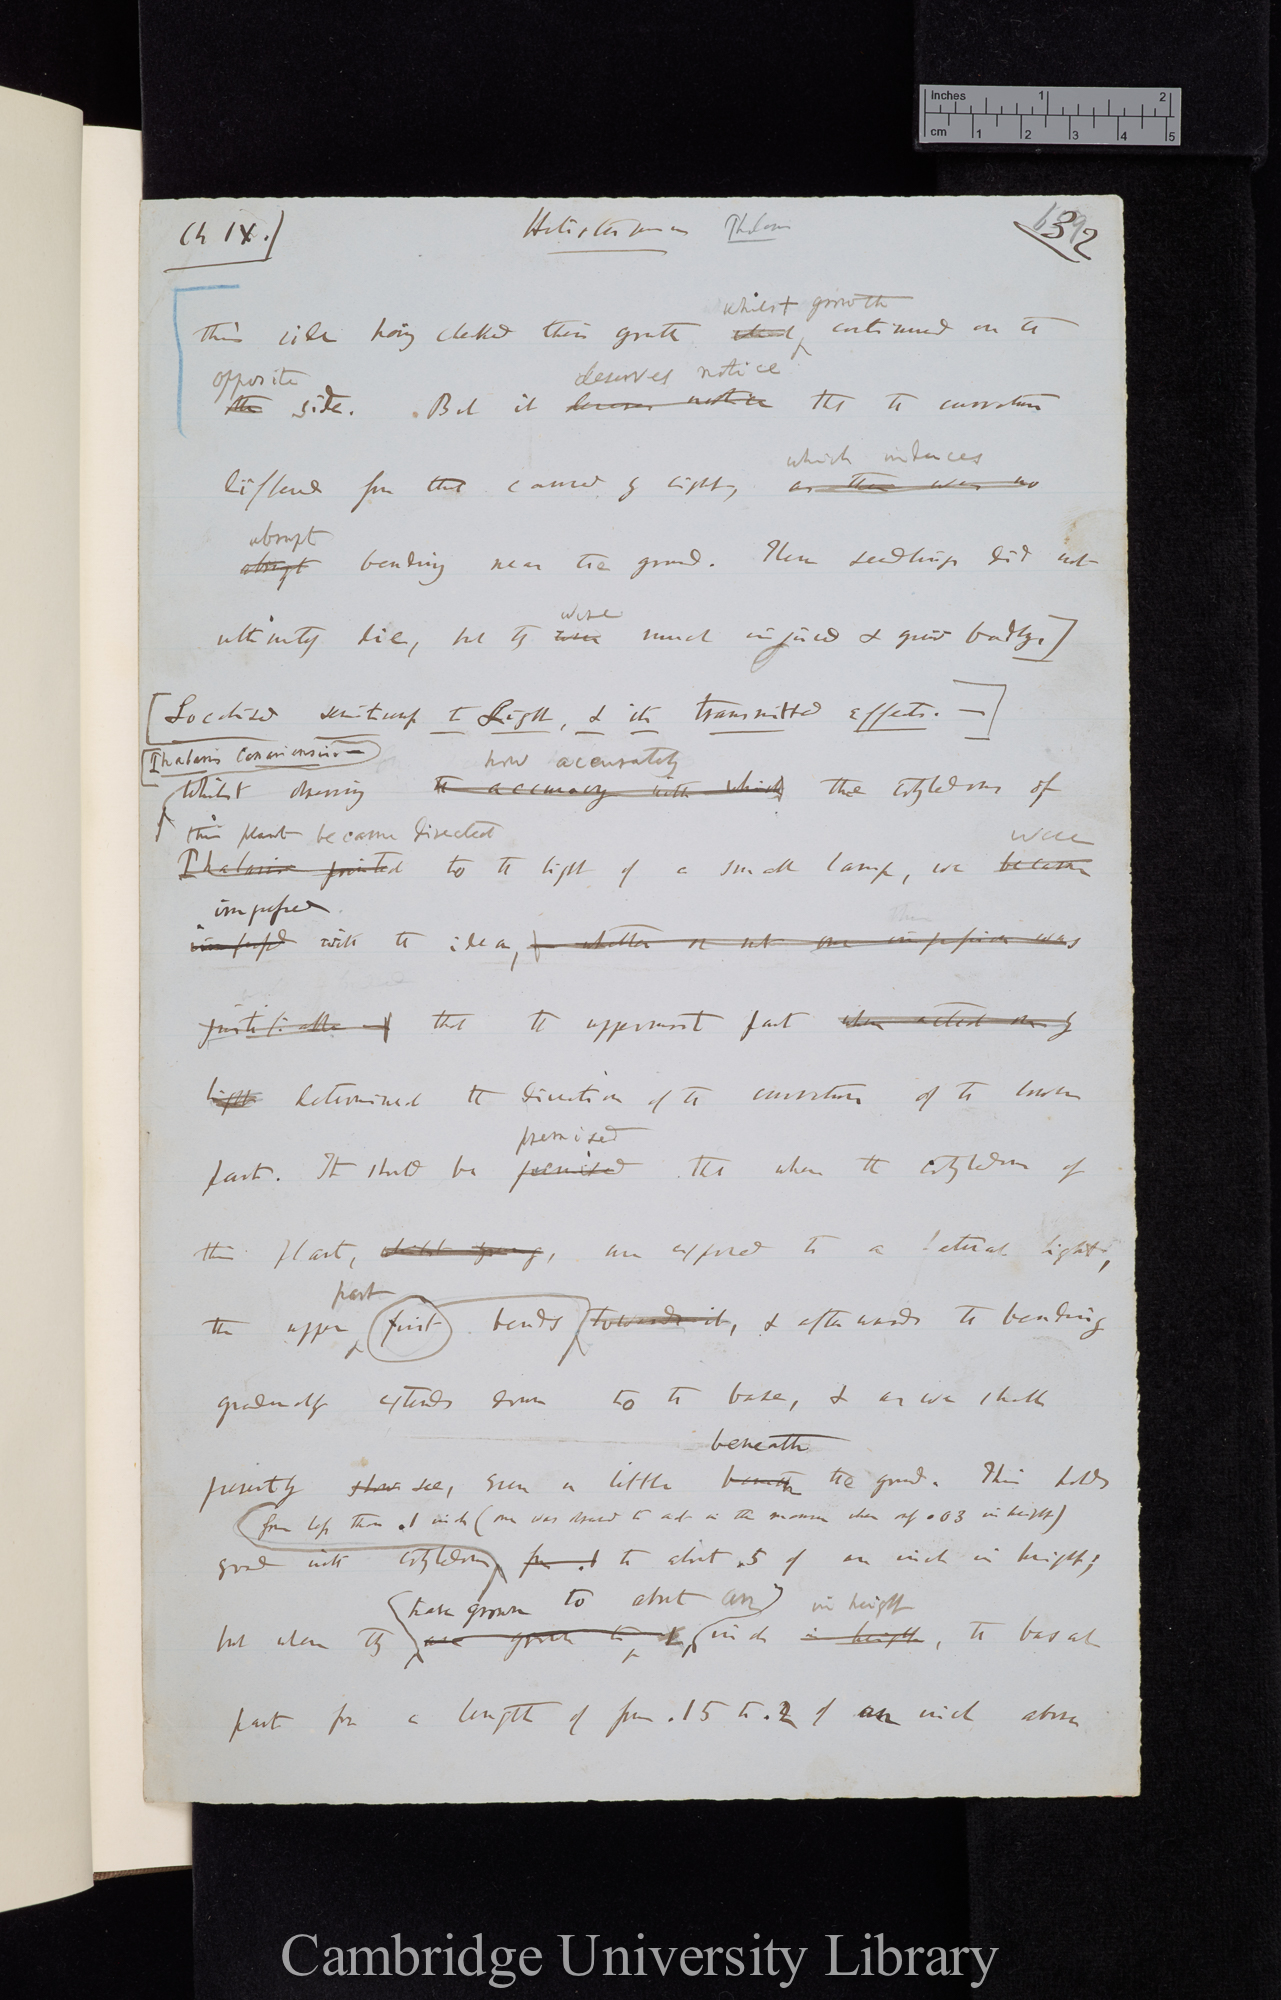 Inches 1 2
cm 1 2 3 4 5
Ch IX.) Heliotropism Phalaris 32
whilst growth
this side having checked their growth continued on the
opposite deserves notice
the side. But it deserves notice that the curvature
which induces
differed from that caused by light, as there was no
abrupt
abrupt bending near the ground. These seedlings did not
were
ultimately die, but they were much injured & grew badly.]
[Localised sensitiveness to Light, & its transmitted effects. —]
[Phalaris Canariensis —
how accurately
Whilst observing the accuracy with which the cotyledons of
this plant became directed were
Phalaris pointed to the light of a small lamp, we became
impressed
impressed with the idea, whether or not our impression was
justifiable that the uppermost part when acted on by
light determined the direction of the curvature of the lower
premised
part. It should be premised that when the cotyledons of
this plant, whilst young, are exposed to a lateral light,
part
the upper first bends towards it, & afterwards the bending
gradually extends down to the base, & as we shall
beneath
presently show see, even a little beneath the ground. This holds
from less than .1 inch (one was observed to act in this manner when only .03 in height)
good with cotyledons from .1 to about .5 of an inch in height;
have grown to about an in height
but when they are grown to 1 inch in height, the basal
part for a length of from .15 to .2 of an inch above
Cambridge University Library